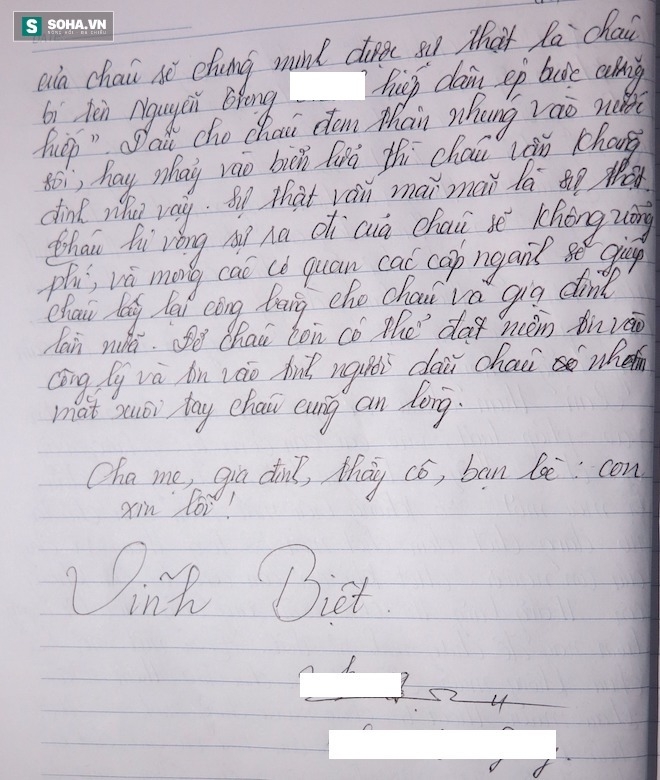 SOHA.VN
NÓNG HỔI - ĐA CHIỀU
của cháu sẽ chứng minh được sự thật là cháu
bị tên Nguyễn Trọng hiếp dâm ép buộc cưỡng
hiếp". Dẫu cho cháu đem thân nhúng vào nước
sôi, hay nhảy vào biển lửa thì cháu vẫn khẳng
định như vậy. Sự thật vẫn mãi mãi là sự thật.
Cháu hi vọng sự ra đi của cháu sẽ không uổng
phí, và mong các cơ quan các cấp ngành sẽ giúp
cháu lấy lại công bằng cho cháu và gia đình
lần nữa. Để cháu còn có thể đặt niềm tin vào
công lý và tin vào tình người dẫu cháu có nhắm
mắt xuôi tay cháu cũng an lòng.
Cha mẹ, gia đình, thầy cô, bạn bè: con
xin lỗi!
Vĩnh Biệt.